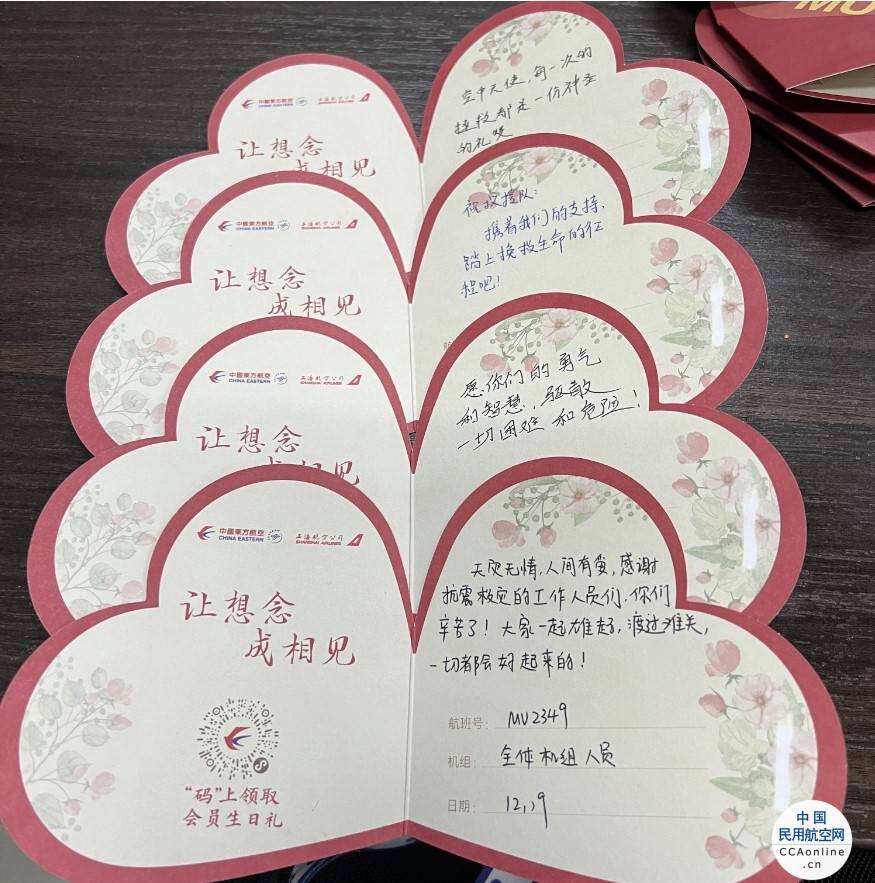 MU
中國東方航空 上海航空公司
CHINA EASTERN SHANGHAI AIRLINES
让想念
成相见
空中天使,每一次的
拯救都是一份神圣
的礼赞
中國東方航空 上海航空公司
CHINA EASTERN SHANGHAI AIRLINES
让想念
成相见
祝救援队:
携着我们的支持、
踏上挽救生命的征
程吧!
中國東方航空 上海航空公司
CHINA EASTERN SHANGHAI AIRLINES
让想念
成相见
愿你们的勇气
和智慧,驱散
一切困难和危险!
中國東方航空 上海航空公司
CHINA EASTERN SHANGHAI AIRLINES
让想念
成相见
“码”上领取
会员生日礼
天灾无情,人间有爱,感谢
抗震救灾的工作人员们.你们
辛苦了!大家一起雄起,渡过难关,
一切都会好起来的!
航班号: MU2349
机组: 全体机组人员
日期: 12,19
中国
民用航空网
CCAonline
.cn